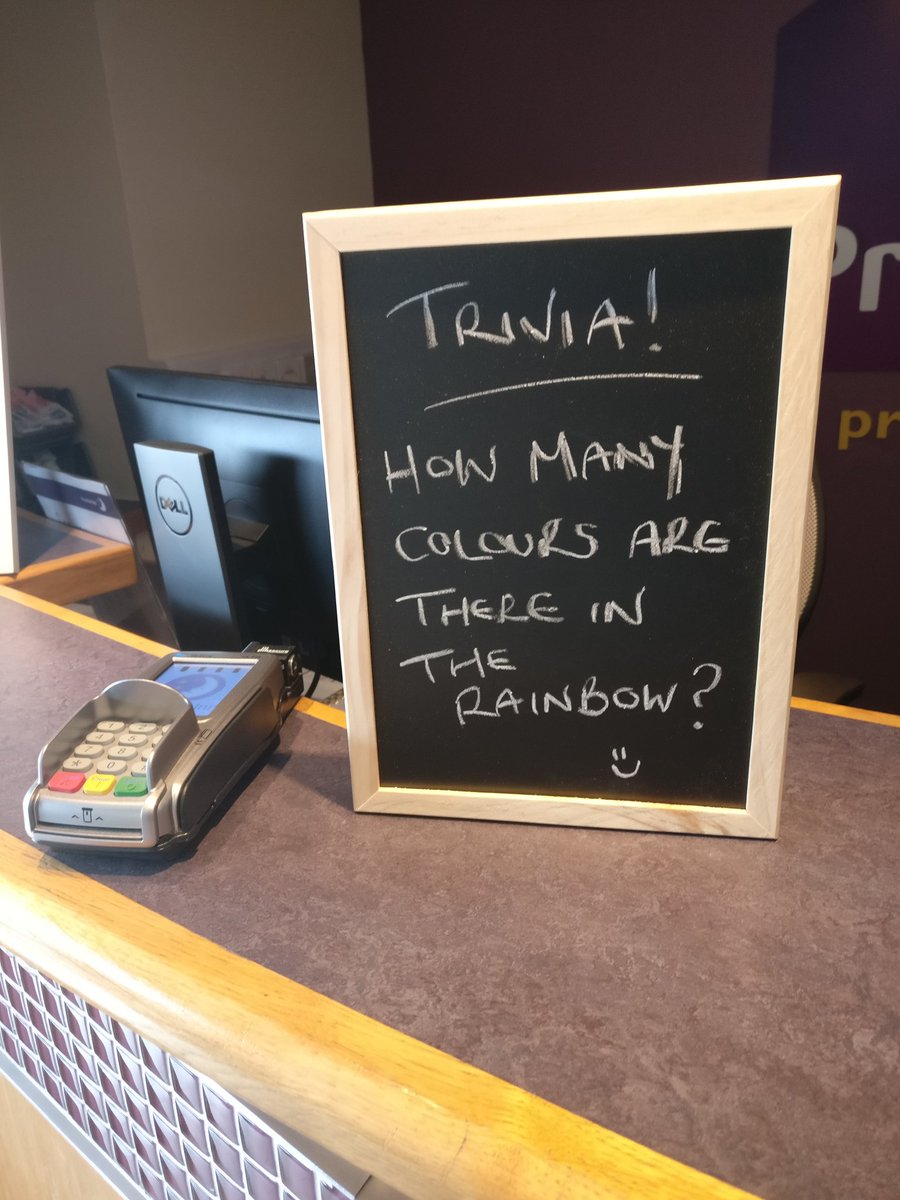 TRIVIA!
HOW MANY
COLOURS ARE
THERE IN
THE
RAINBOW?
DELL
Pr
pr